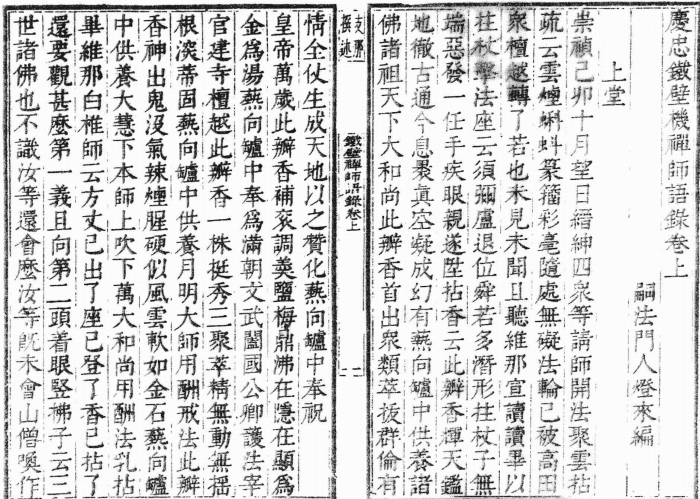 慶忠鐵壁機禪師語錄卷上
嗣法門人燈來編
上堂
崇禎己卯十月望日縉紳四衆等請師開法聚雲拈
疏云雲煙蝌蚪篆籀彩毫隨處無礙法輪已被高田
衆檀越轉了若也未見未聞且聽維那宣讀讀畢以
拄杖擊法座云須彌盧退位舜若多潛形拄杖子無
端惡發一任手疾眼親遂陞拈香云此瓣香輝天鑑
地徹古通今息聚真空凝成幻有爇向罏中供養諸
佛諸祖天下大和尚此瓣香首出衆類萃拔群倫有
支那
撰述
鐵壁禪師語錄卷上
一
情全仗生成天地以之贊化爇向罏中奉祝
皇帝萬歲此瓣香補衮調羹鹽梅鼎沸在隱在顯爲
金爲湯爇向罏中奉爲滿朝文武闔國公卿護法宰
官建寺檀越此瓣香一株挺秀三聚萃精無動無搖
根深蒂固爇向罏中供養月明大師用酬戒法此瓣
香神出鬼沒氣辣煙腥硬似風雲軟如金石爇向罏
中供養大慧下本師上吹下萬大和尚用酬法乳拈
畢維那白椎師云方丈已出了座已登了香已拈了
還要觀甚麽第一義且向第二頭着眼竪拂子云三
世諸佛也不識汝等還會麽汝等旣未會山僧喚作